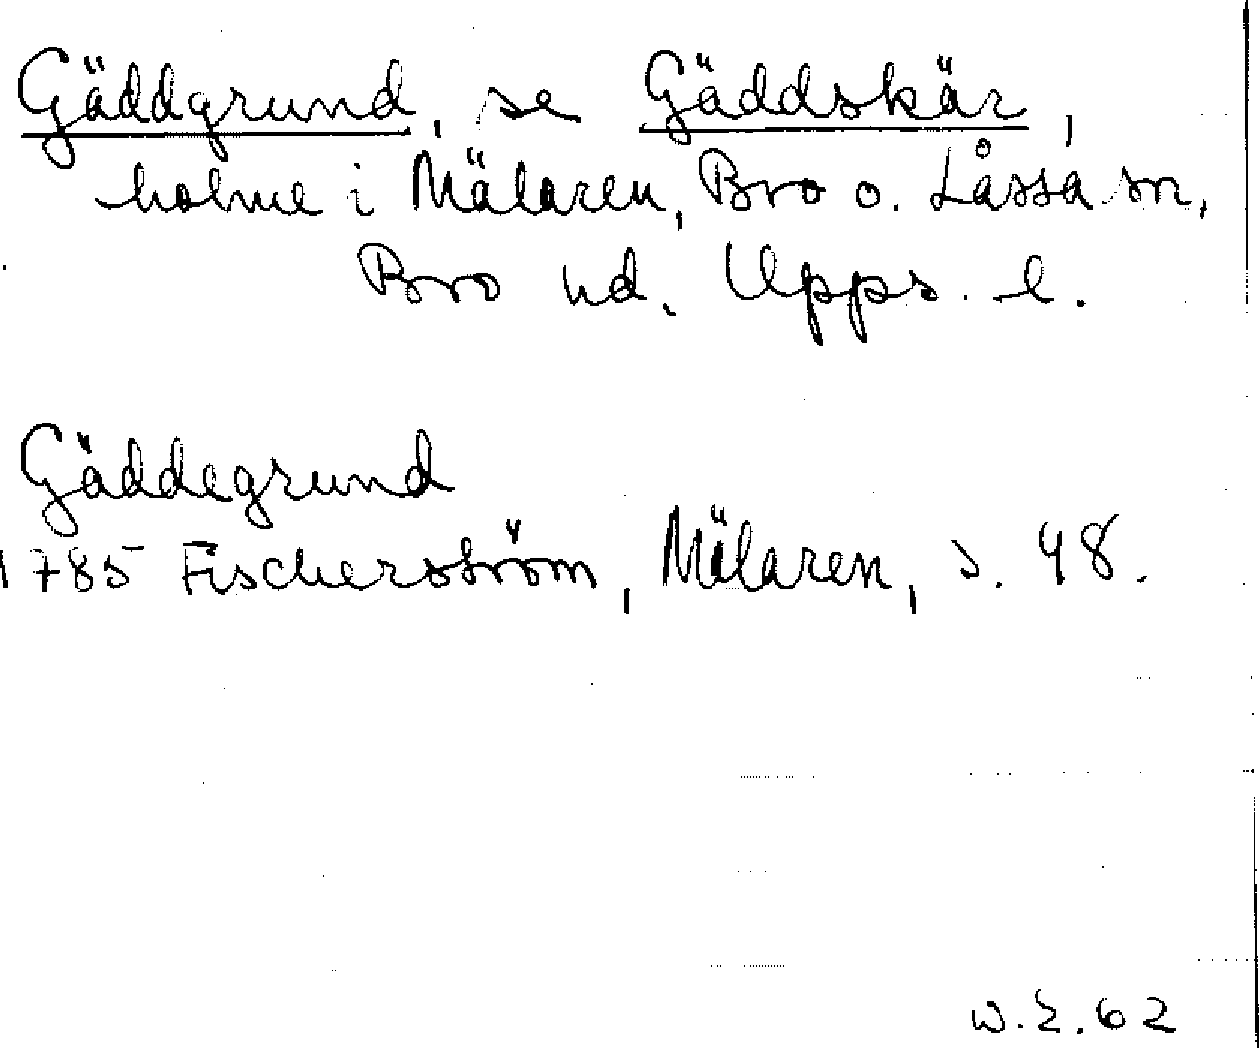 Gäddgrund, se Gäddskär,
holme i Mälaren, Bro o. Låssa sn,
Bro hd, Upps. l.
Gäddegrund
1785 Fischerström, Mälaren, s. 48.
W.E.62